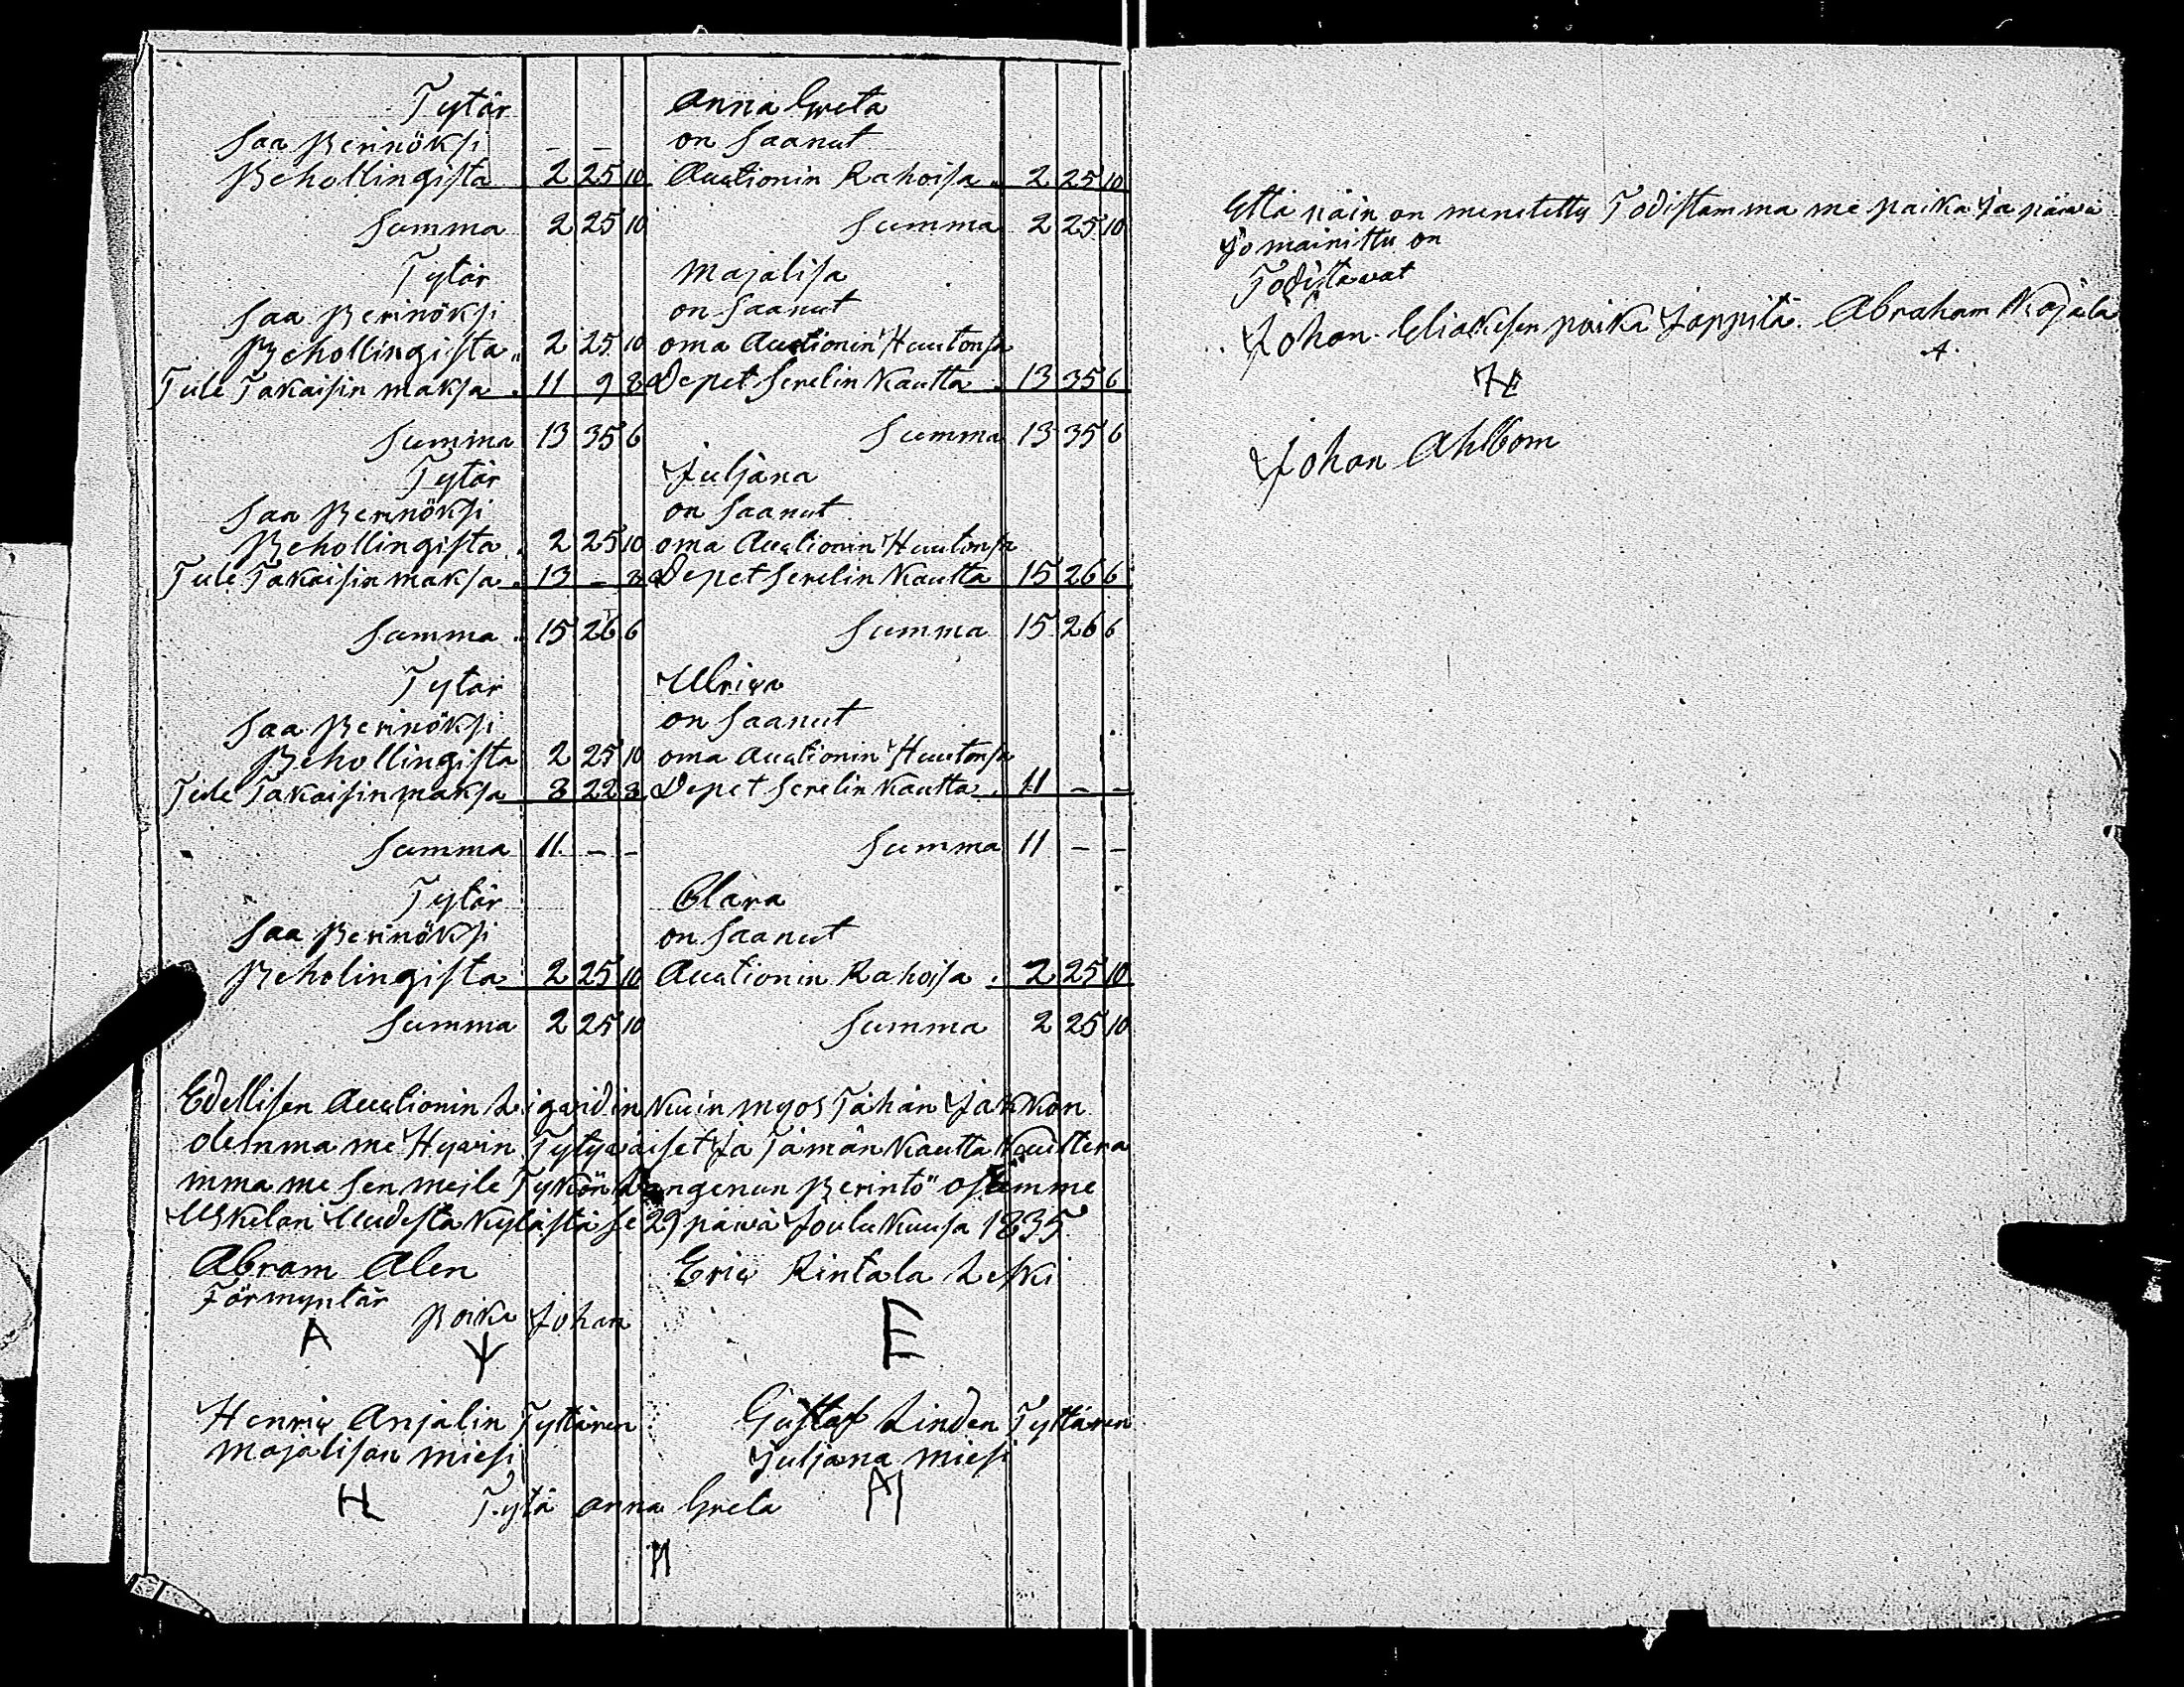 Tytär Anna Greta
saa Perinöksi - - on saanut
Behollingista 2 25 10 Auctionin Rahoisa 2 25 10
Summa 2 25 10 Summa 2 25 10
Tytär Majalisa
saa Perinöksi on saanut
Behollingista 2 25 10 oma Auctionin Huutonsa
Tule Takaisin maksa 11 9 8 Depet Serelin kautta 13 35 6
Summa 13 35 6 Summa 13 35 6
Tytär Juljana
saa Perinöksi on saanut
Behollingista 2 25 10 oma Auctionin Huutonsa
Tule Takaisin maksa 13 - 8 Depet Serelin kautta 15 26 6
Summa 15 26 6 Summa 15 26 6
Tytär Ulrica
saa Perinöksi on saanut
Behollingista 2 25 10 oma Auctionin Huutonsa
Tule Takaisin maksa 8 22 8 Depet Serelin kautta 11 - -
Summa 11 - - Summa 11 - -
Tytär Clara
saa Perinöksi on saanut
Beholingista 2 25 10 Auctionin Rahoisa 2 25 10
Summa 2 25 10 Summa 2 25 10
Edellisen Auctionin kuin myos Tähän Jakkon
olemma me Hywin Tytywäiset ja Tämän kautta kuittera
mma me sen meile Tykön langenun Perintö osamme
Uskelan Uudesta kylästä se 29 päiwä Joulukuusa 1835
Abram Alen Eric Rintala Leski
Förmyntär Poika Johan
A E
Henric Anjalin Tyttären Gustaf Linden Tyttären
Majalisan miesi Juljana miesi
H Tytä Anna Greta
Että näin on menetetty Todistamma me paika ja päiwä
jo mainittu on
Todistawat
Johan Eliaksen poika Jappilä Abraham Kojala
A
Johan Ahlbom